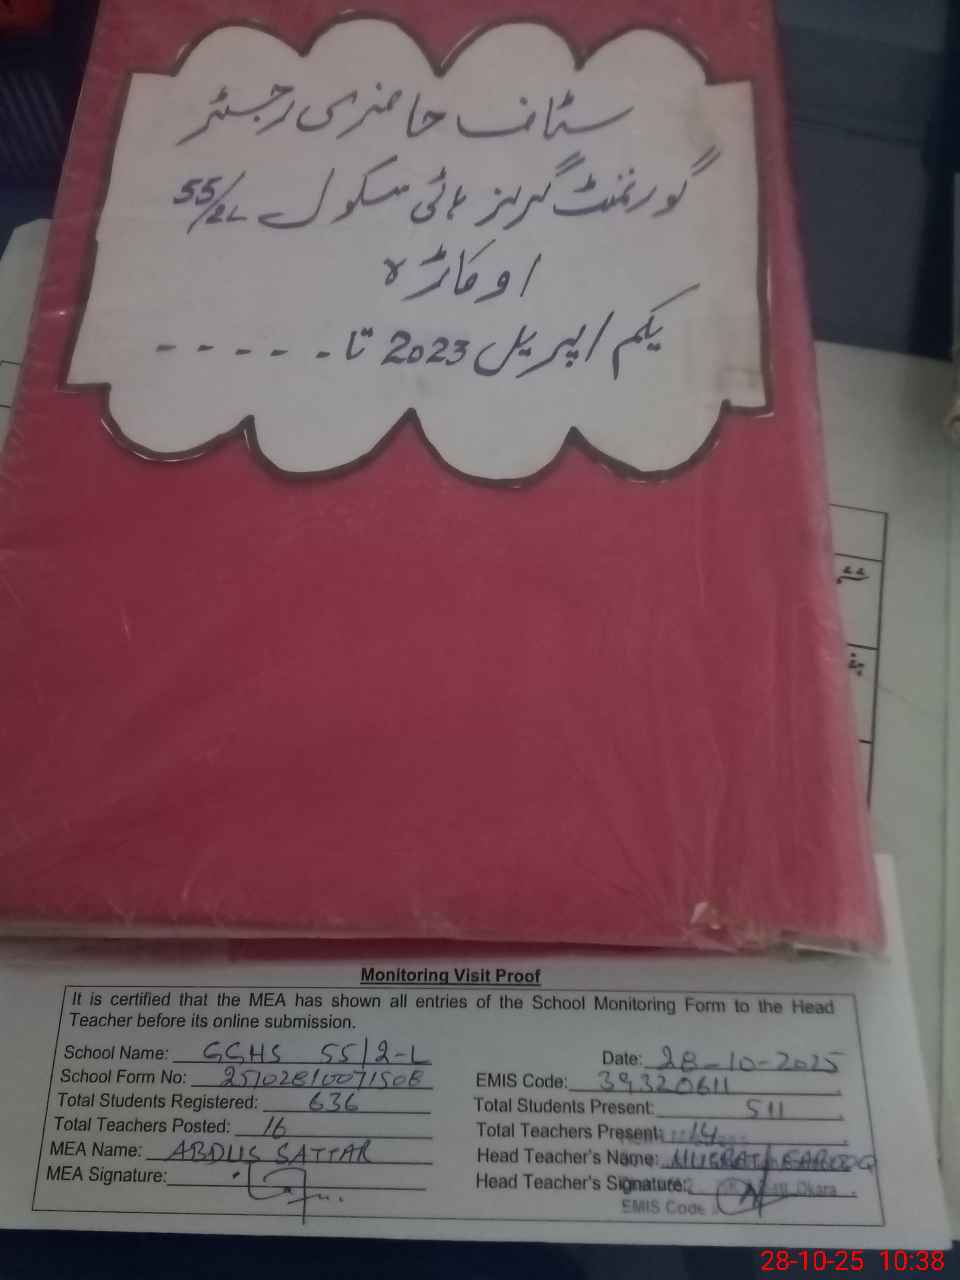 سٹاف حاضری رجسٹر
گورنمنٹ گرلز ہائی سکول 55/2L
اوکاڑہ
یکم اپریل 2023 تا - - - - -
Monitoring Visit Proof
It is certified that the MEA has shown all entries of the School Monitoring Form to the Head
Teacher before its online submission.
School Name: GGHS 55/2-L Date: 28-10-2025
School Form No: 2510281007150B EMIS Code: 39320611
Total Students Registered: 636 Total Students Present: 511
Total Teachers Posted: 16 Total Teachers Present: 14
MEA Name: ABDUS SATTAR Head Teacher's Name: NUSRAT FAROOQ
MEA Signature: Head Teacher's Signature: Okara
EMIS Code
28-10-25 10:38